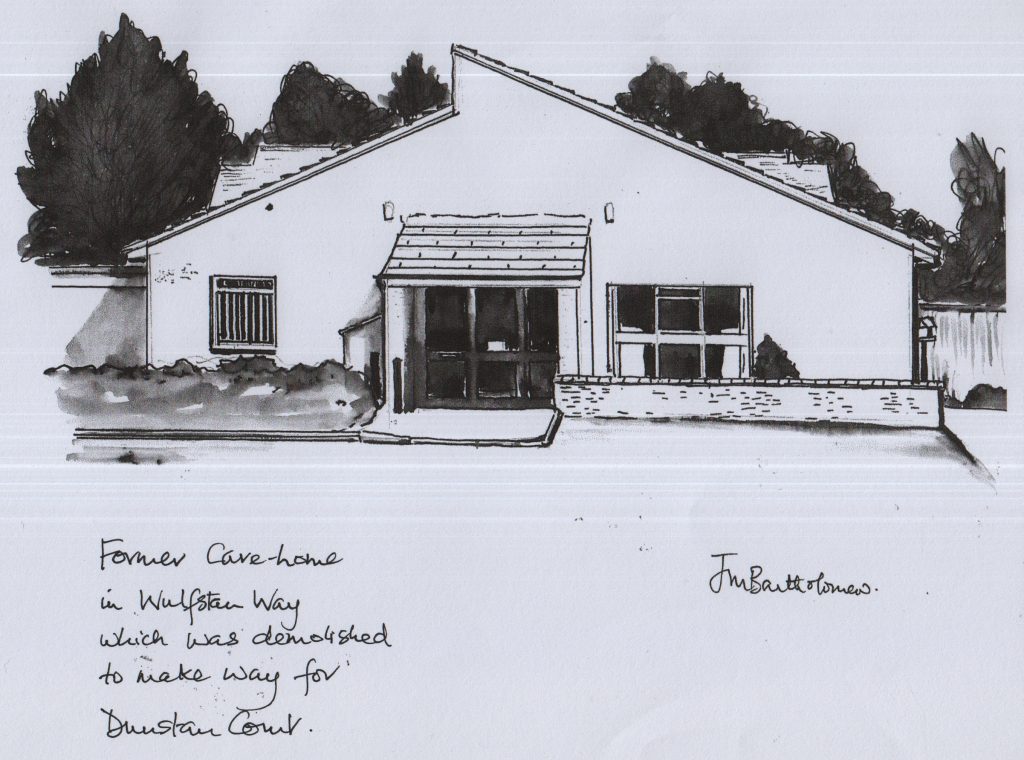 Former Care-home
in Wulfstan Way
which was demolished
to make way for
Dunstan Court.
JMBartholomew.